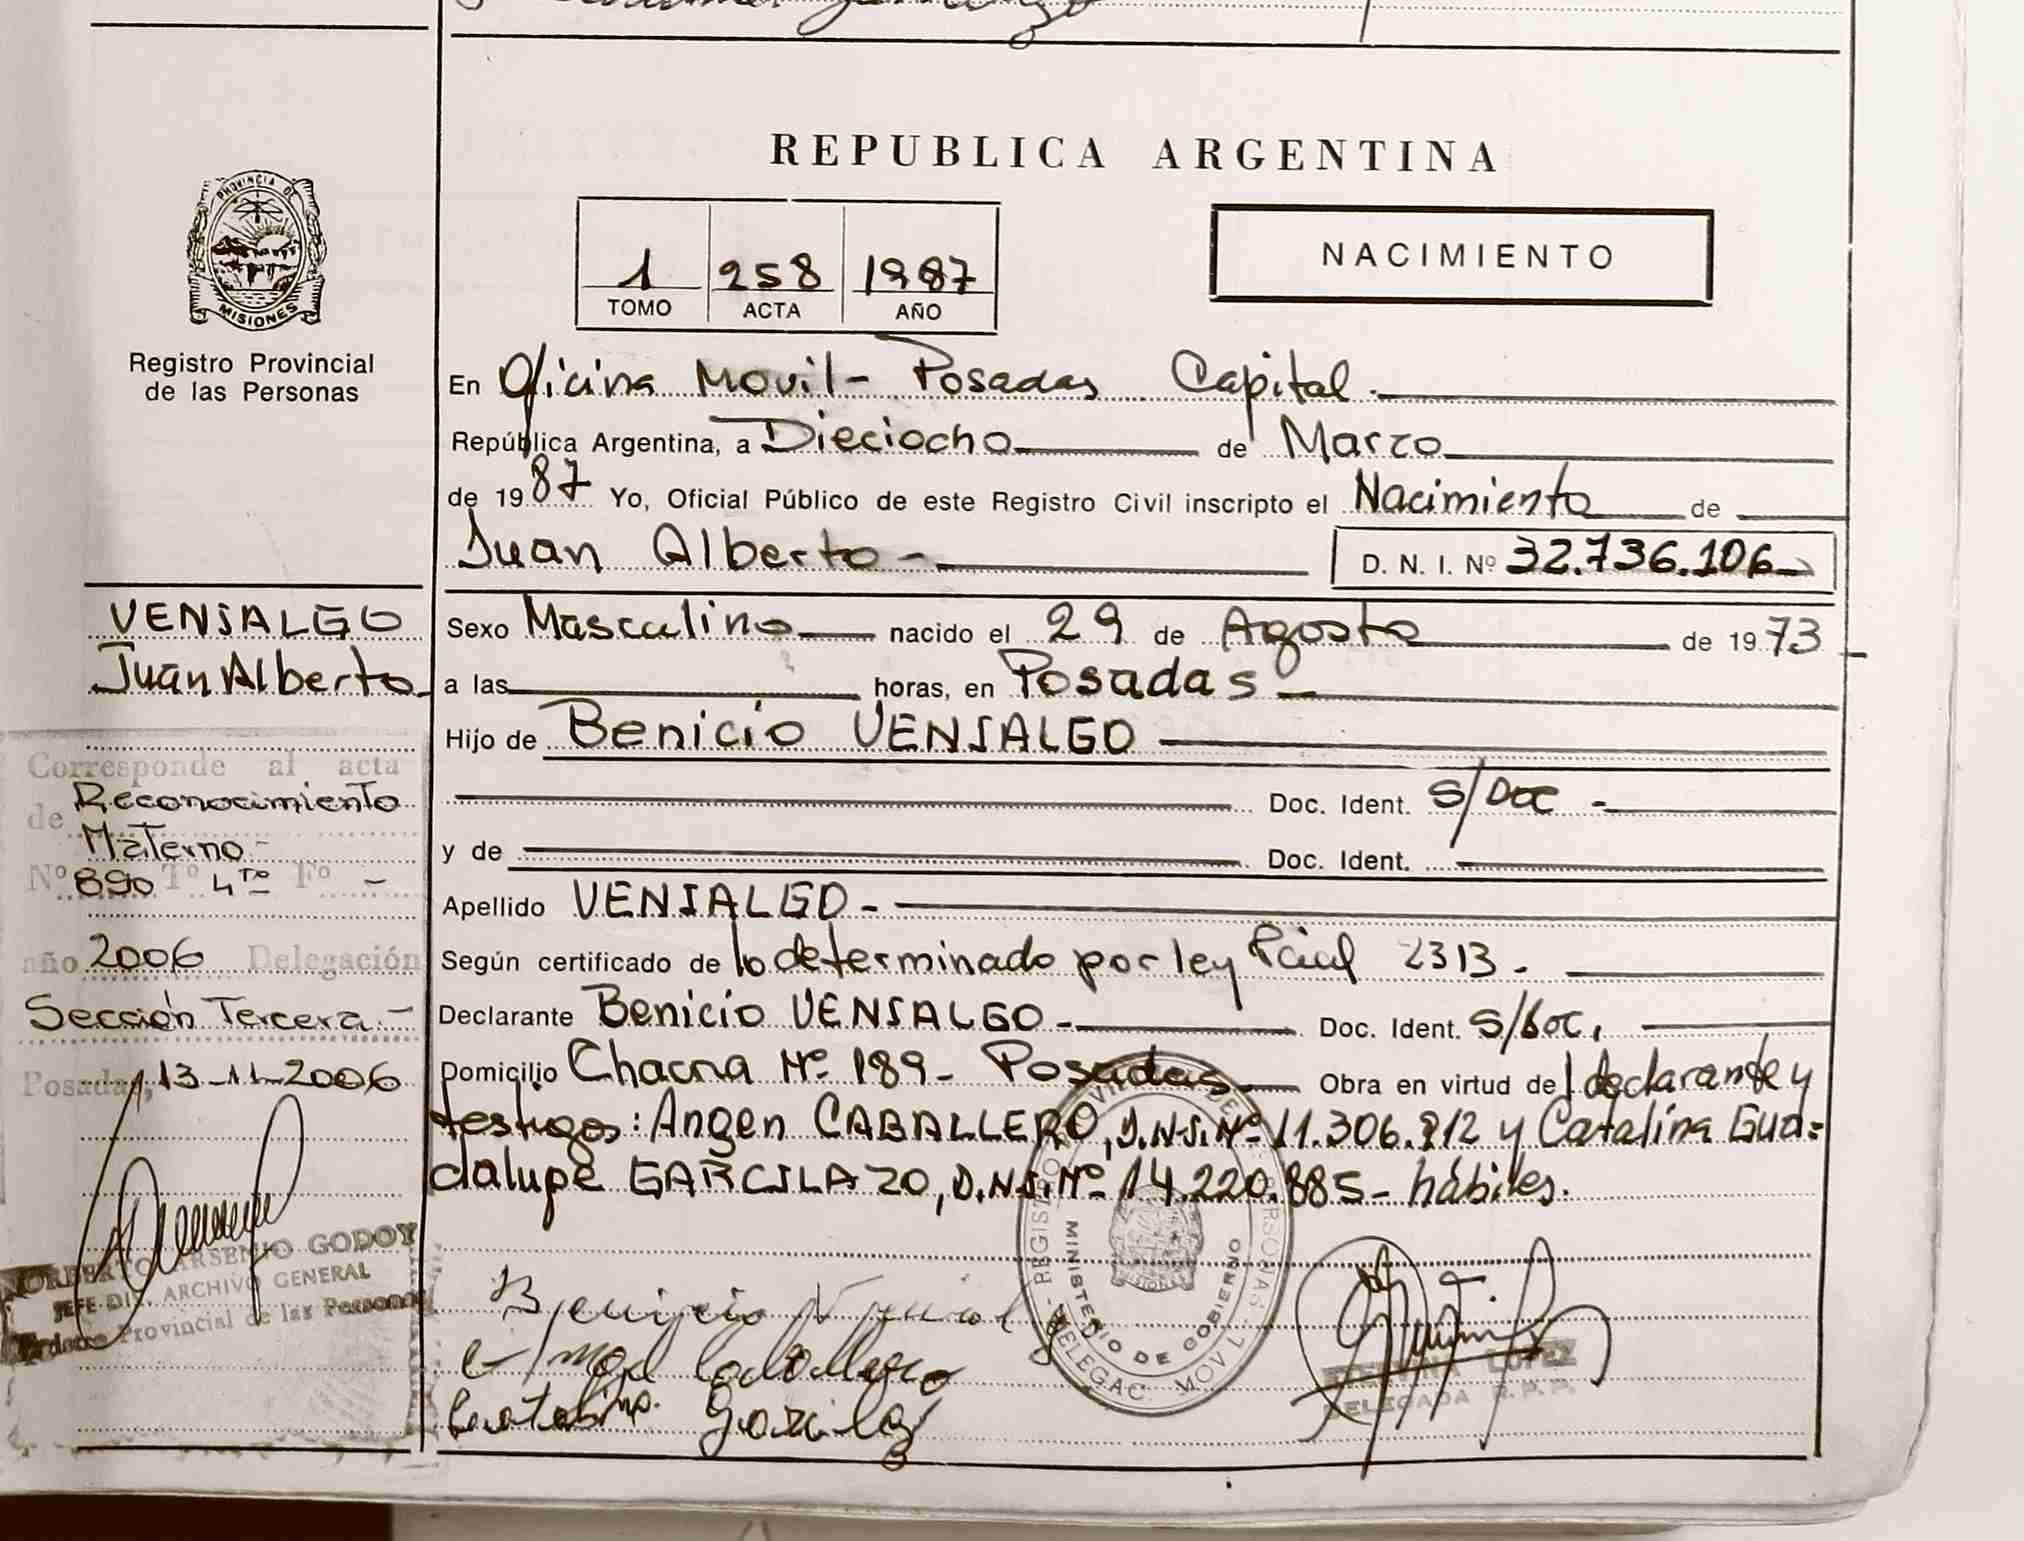 REPUBLICA ARGENTINA
PROVINCIA DE
MISIONES
Registro Provincial
de las Personas
1 258 1987
TOMO ACTA AÑO
NACIMIENTO
En Oficina Movil - Posadas Capital.
República Argentina, a Dieciocho de Marzo
de 1987 Yo, Oficial Público de este Registro Civil inscripto el Nacimiento de
Juan Alberto - D. N. I. Nº 32.736.106
VENIALGO
Juan Alberto
Sexo Masculino nacido el 29 de Agosto de 1973
a las horas, en Posadas
Hijo de Benicio VENIALGO
Doc. Ident. S/Doc -
y de Doc. Ident.
Apellido VENIALGO -
Según certificado de lo determinado por ley Pcial 2313.
Declarante Benicio VENIALGO - Doc. Ident. S/Doc.
Domicilio Chacra Nº 189 - Posadas Obra en virtud del declarante y
testigos: Angel CABALLERO, D.N.I. Nº 11.306.812 y Catalina Gua-
dalupe GARCILAZO, D.N.I. Nº 14.220.885 - hábiles.
Corresponde al acta
de Reconocimiento
Materno -
Nº 890 Tº 4to Fº -
año 2006 Delegación
Sección Tercera. -
Posadas, 13-11-2006
NORBERTO ARSENIO GODOY
JEFE DIV. ARCHIVO GENERAL
Provincial de las Personas
Benicio
Caballero
MINISTERIO DE GOBIERNO
DELEGAC. MOVIL
LOPEZ
DELEGADA R.P.P.